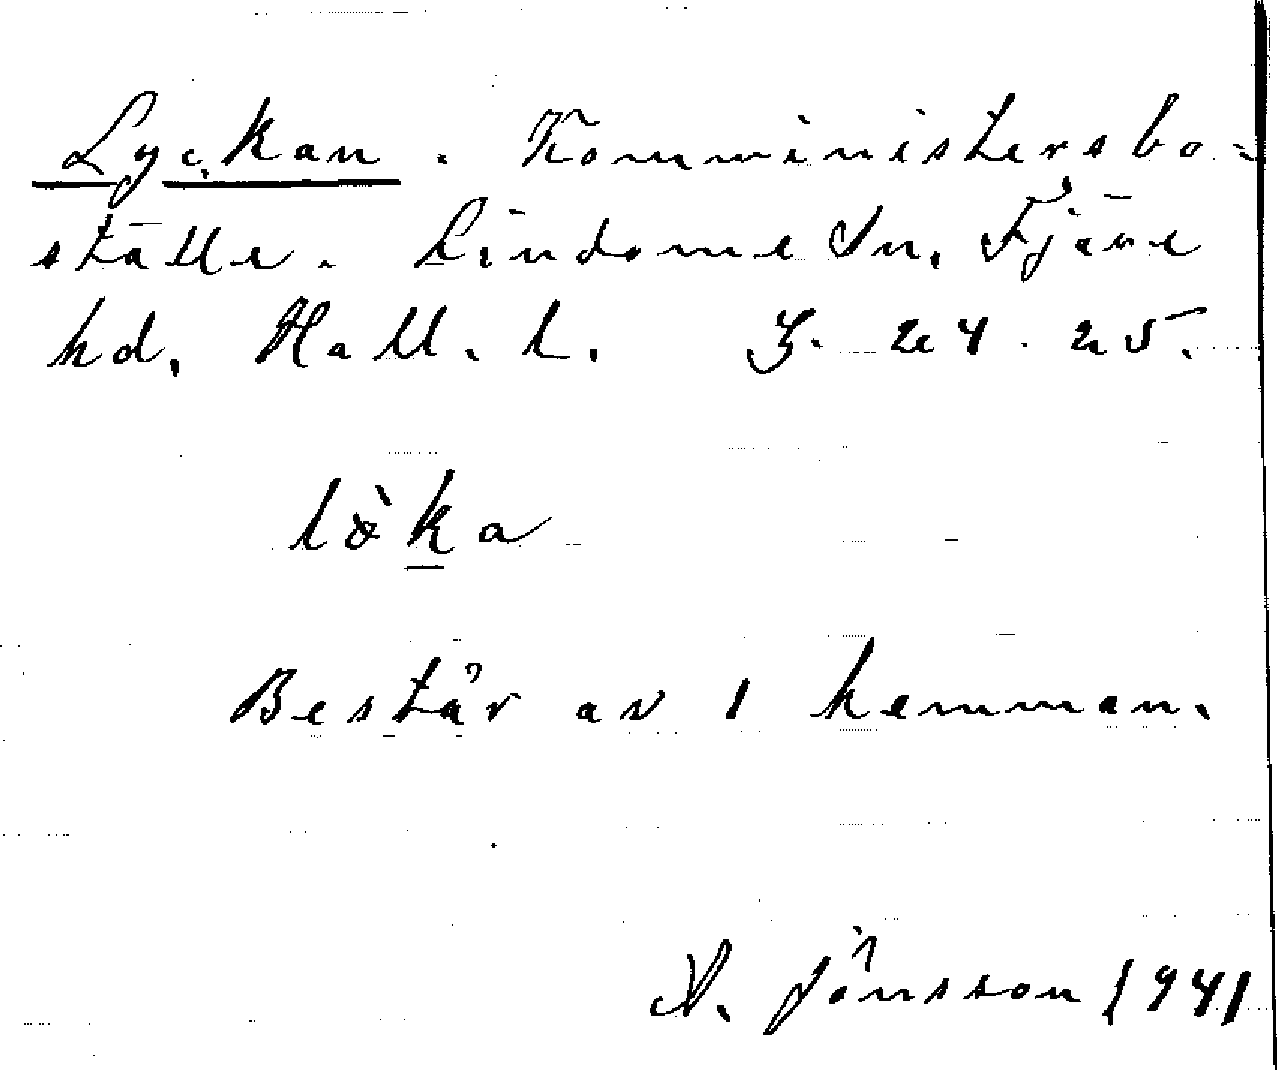 Lyckan. Komministersbo-
ställe. Lindome Sn, Fjäre
hd, Hall. l. Z. 24. 25.
lö̀ka
Består av 1 hemman.
A. Jönsson 1941